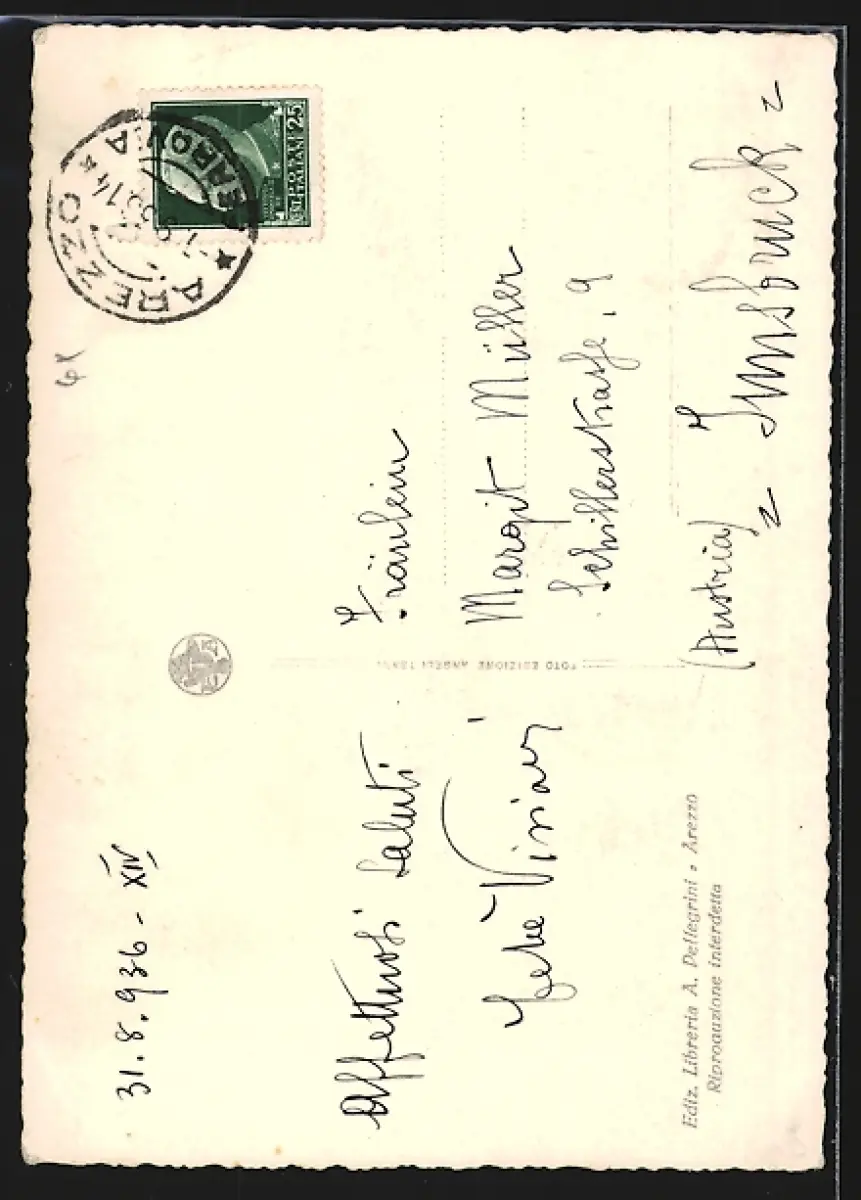 31.8.936 - XIV
Affettuosi saluti
Fräulein
Margit Müller
Schillerstraße, 9
Innsbruck
(Austria)
Ediz. Libreria A. Pellegrini - Arezzo
Riproduzione interdetta
FOTO EDIZIONE ANGELI TERNI
AREZZO
POSTE ITALIANE
CENT. 25